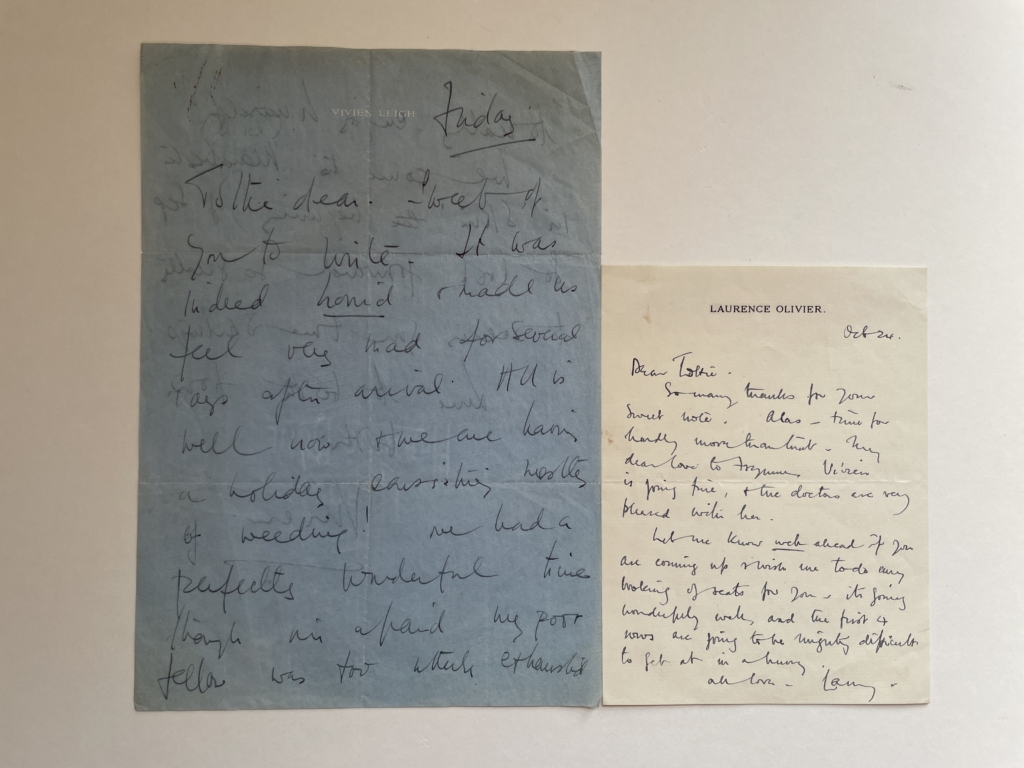 VIVIEN LEIGH
Friday
Tottie dear. Sweet of
you to write. It was
indeed horrid & made us
feel very mad for several
days after arrival. All is
well now & we are having
a holiday consisting mostly
of weeding! We had a
perfectly wonderful time
though I'm afraid my poor
fellow was too utterly exhausted
LAURENCE OLIVIER.
Oct 24.
Dear Tottie.
So many thanks for your
sweet note. Alas – time for
hardly more than that. My
dear love to Vivien
is going fine, & the doctors are very
pleased with her.
Let me know well ahead if you
are coming up & wish me to do any
booking of seats for you – its going
wonderfully well, and the first 4
rows are going to be mighty difficult
to get at in a hurry.
all love – Larry.